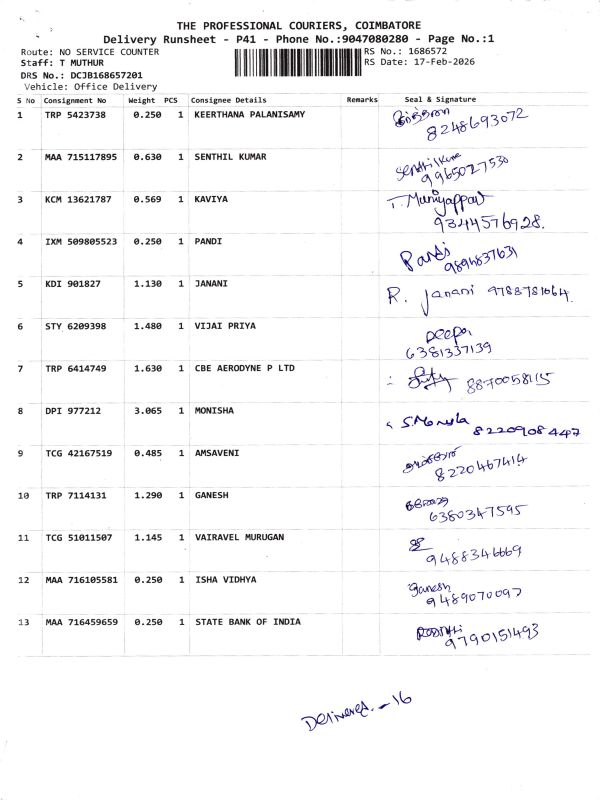 THE PROFESSIONAL COURIERS, COIMBATORE
Delivery Runsheet - P41 - Phone No.:9047080280 - Page No.:1
Route: NO SERVICE COUNTER RS No.: 1686572
Staff: T MUTHUR RS Date: 17-Feb-2026
DRS No.: DCJB168657201
Vehicle: Office Delivery
S No Consignment No Weight PCS Consignee Details Remarks Seal & Signature
1 TRP 5423738 0.250 1 KEERTHANA PALANISAMY
8248693072
2 MAA 715117895 0.630 1 SENTHIL KUMAR Senthilkumar
9965027530
3 KCM 13621787 0.569 1 KAVIYA T. Muniyappan
9344576928.
4 IXM 509805523 0.250 1 PANDI Pandi
9894837631
5 KDI 901827 1.130 1 JANANI R. Janani 9788781064.
6 STY 6209398 1.480 1 VIJAI PRIYA Deepa
6381337139
7 TRP 6414749 1.630 1 CBE AERODYNE P LTD 8870058115
8 DPI 977212 3.065 1 MONISHA
8220908447
9 TCG 42167519 0.485 1 AMSAVENI
8220467414
10 TRP 7114131 1.290 1 GANESH
6380347595
11 TCG 51011507 1.145 1 VAIRAVEL MURUGAN
9488346669
12 MAA 716105581 0.250 1 ISHA VIDHYA Ganesh
9489070097
13 MAA 716459659 0.250 1 STATE BANK OF INDIA
9790151493
Delivered - 16